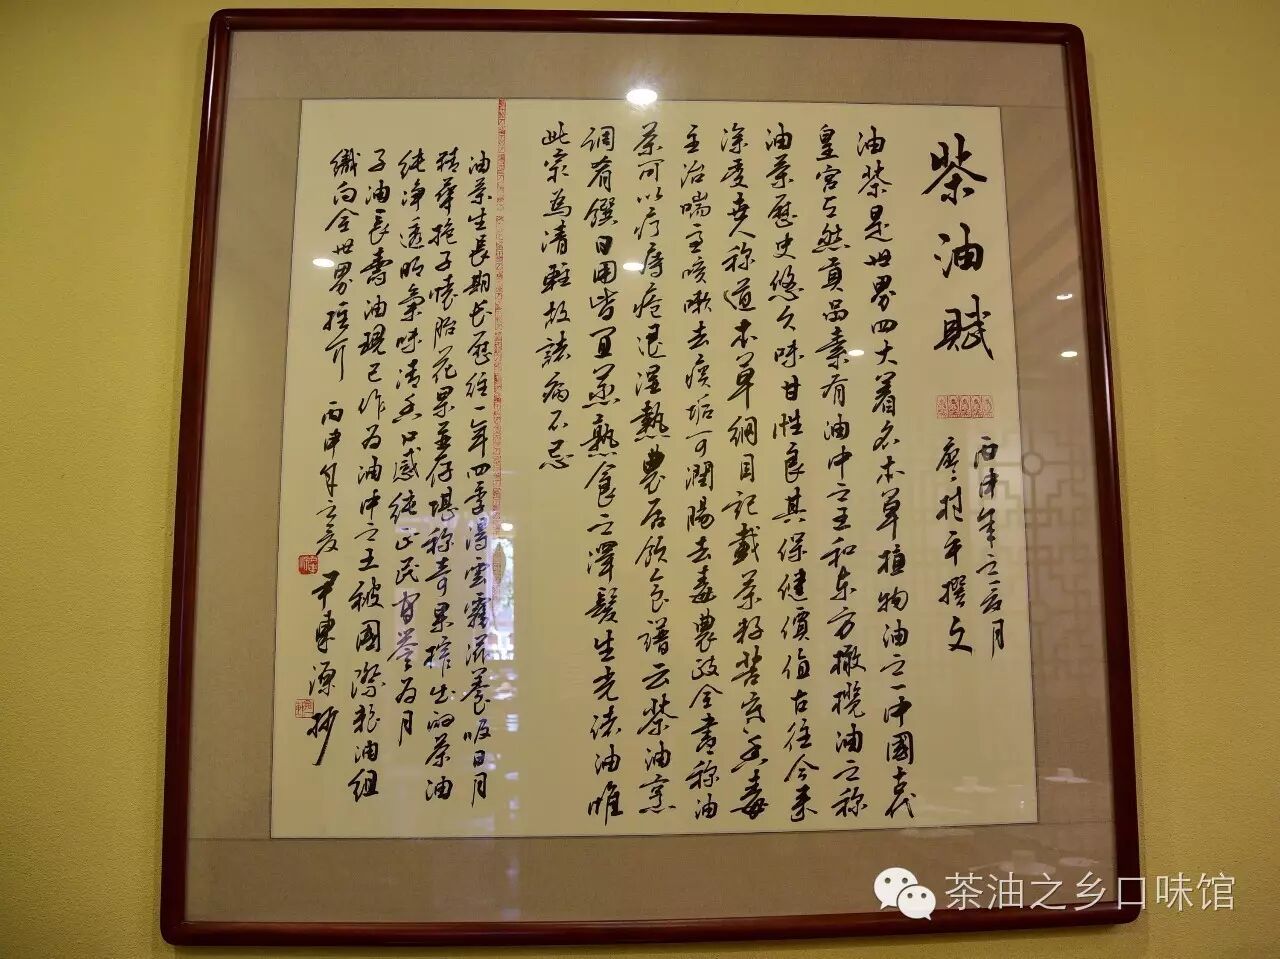 茶油賦
丙申年之夏月
廖樹平撰文
油茶是世界四大著名木草植物油之一中國古代
皇宮天然貢品素有油中之王和东方橄欖油之称
油茶歷史悠久味甘性良其保健價值古往今来
深受众人称道本草綱目記載茶籽苦寒毒
主治喘主咳嗽去痰垢可潤腸去毒農政全書称油
茶可以疗痔疮退濕熱農居飲食譜云茶油烹
调肴饌日用皆宜蒸熟食之澤髮生光諸油惟
此最為清輕故諸病不忌
油茶生長期长歷经一年四季得雲霧滋養吸日月
精華抱子懷胎花果並存堪称奇果榨出的茶油
純净透明氣味清香口感純正民间誉为月
子油長壽油現已作为油中之王被國際粮油組
織向全世界推介
丙申年之夏
尹東源抄
茶油之乡口味馆